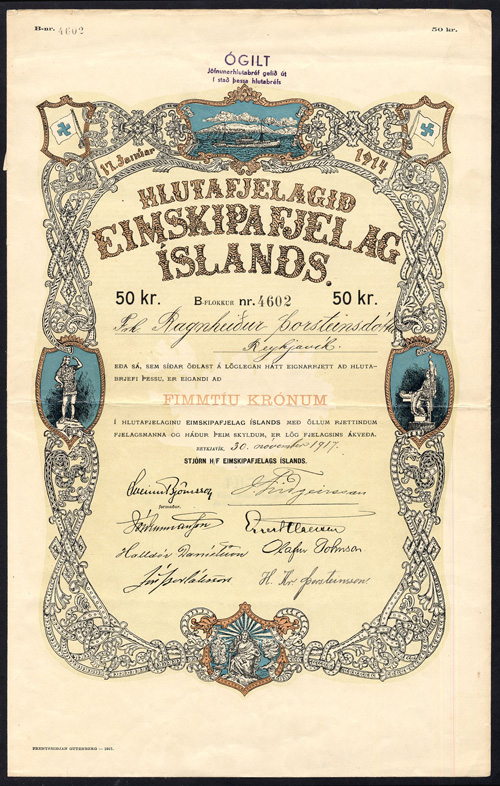 B-nr. 4602
50 kr.
ÓGILT
Jöfnunarhlutabréf gefið út
í stað þessa hlutabréfs
17. Janúar 1914
HLUTAFJELAGIÐ
EIMSKIPAFJELAG
ÍSLANDS.
50 kr. B-FLOKKUR nr. 4602 50 kr.
Frk Ragnheiður Þorsteinsdóttir
Reykjavík.
EÐA SÁ, SEM SÍÐAR ÖÐLAST Á LÖGLEGAN HÁTT EIGNARRJETT AÐ HLUTA-
BRJEFI ÞESSU, ER EIGANDI AÐ
FIMMTÍU KRÓNUM
Í HLUTAFJELAGINU EIMSKIPAFJELAG ÍSLANDS MEÐ ÖLLUM RJETTINDUM
FJELAGSMANNA OG HÁÐUR ÞEIM SKYLDUM, ER LÖG FJELAGSINS ÁKVEÐA.
REYKJAVÍK, 30. november 1917.
STJÓRN H/F EIMSKIPAFJELAGS ÍSLANDS.
Sveinn Björnsson
formaður.
Halldór Daníelsson Olafur Johnson
Jón Þorláksson H. Kr. Þorsteinsson
PRENTSMIÐJAN GUTENBERG — 1917.